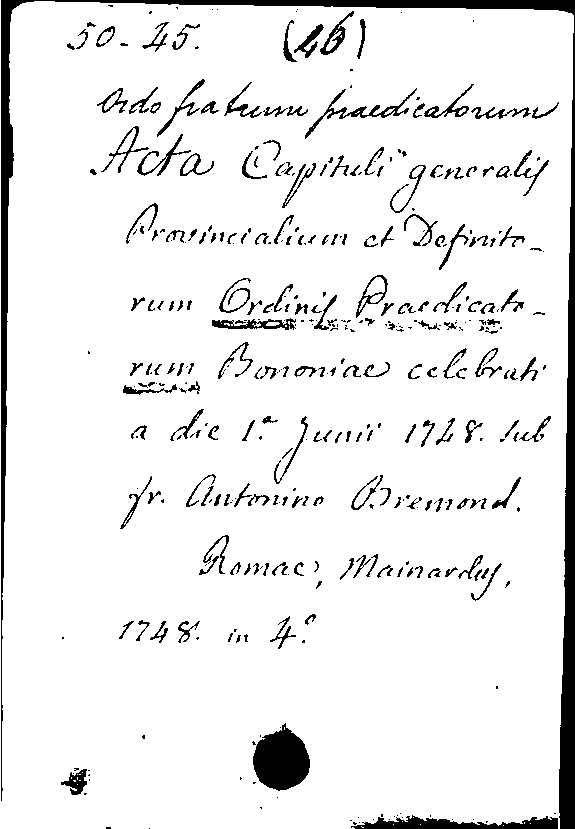 50-45. (46)
Ordo fratrum praedicatorum
Acta Capituli generalis
Provincialium et Definito-
rum Ordinis Praedicato-
rum Bononiae celebrati
a die 1.a Junii 1748. sub
fr. Antonino Bremond.
Romae, Mainardus,
1748. in 4.o